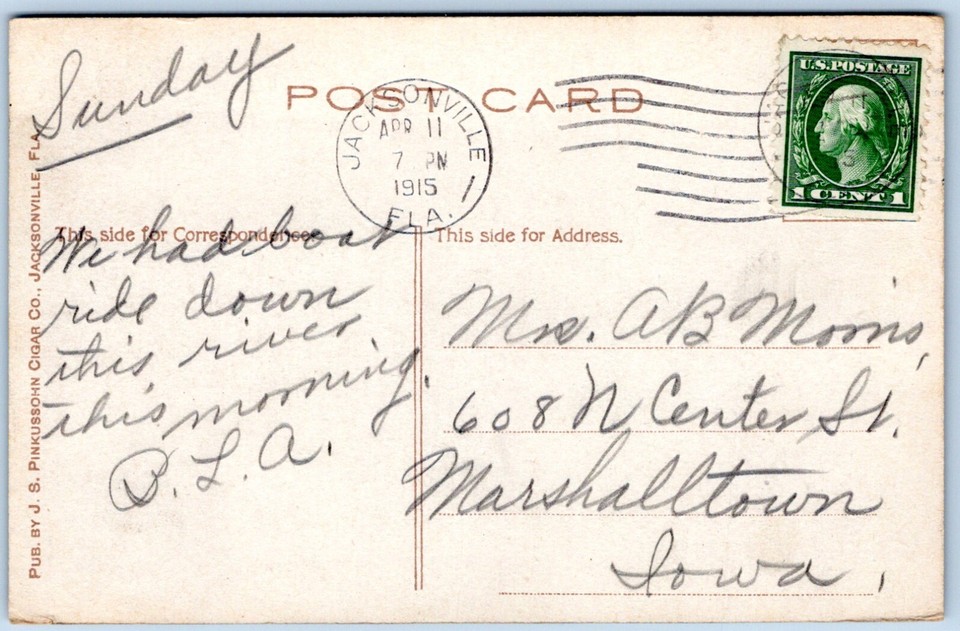 Sunday
POST CARD
JACKSONVILLE
APR 11
7 PM
1915
FLA.
U.S. POSTAGE
1 CENT 1
This side for Correspondence.
This side for Address.
We had boat
ride down
this river
this morning.
B. L. A.
Mrs. A B Morris,
608 N Center St.
Marshalltown
Iowa,
PUB. BY J. S. PINKUSSOHN CIGAR CO., JACKSONVILLE, FLA.